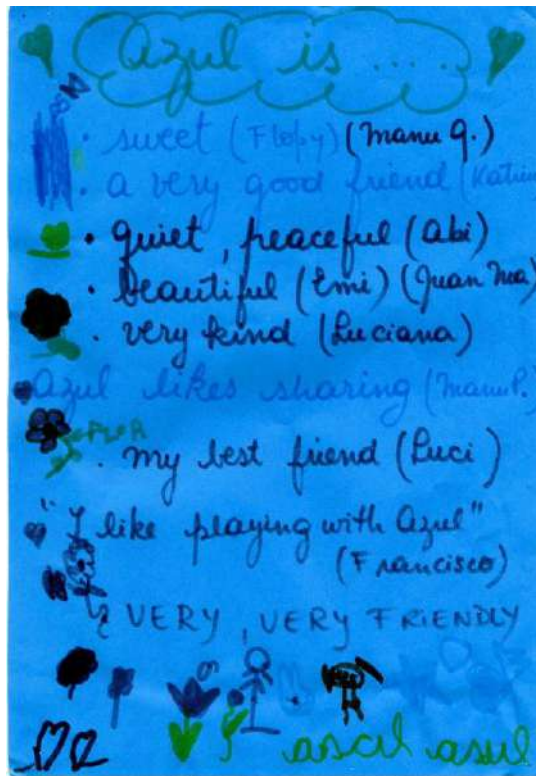 Azul is ....
• sweet (Flopy) (Manu G.)
• a very good friend (Katrin
• quiet, peaceful (Abi)
• beautiful (Emi) (Juan Ma)
• very kind (Luciana)
Azul likes sharing (Manu P.)
FLOR
• my best friend (Luci)
"I like playing with Azul"
(Francisco)
VERY, VERY FRIENDLY
asul asul